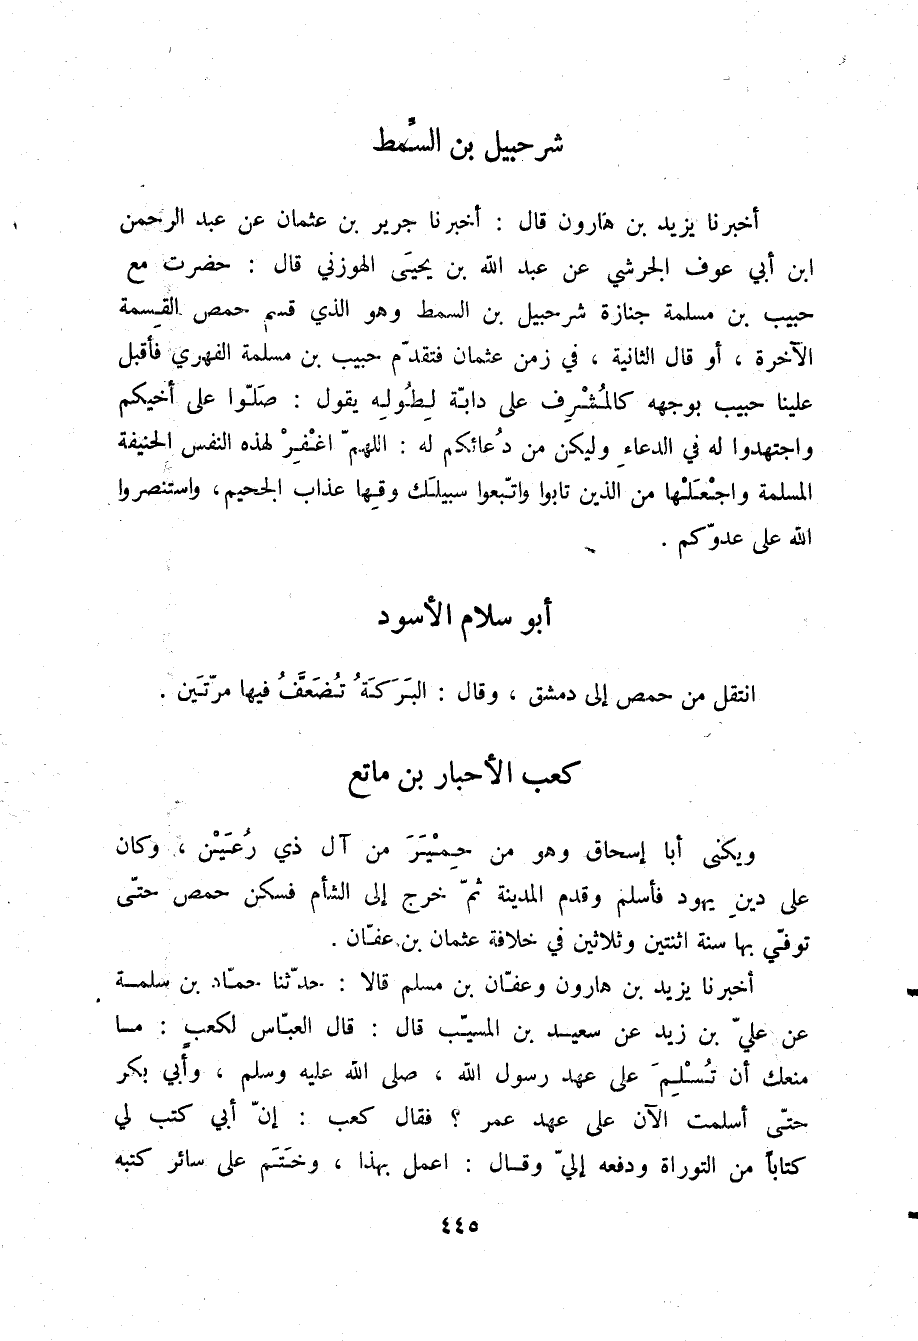 شرحبيل بن السِّمط
أخبرنا يزيد بن هارون قال : أخبرنا جرير بن عثمان عن عبد الرحمن
ابن أبي عوف الجرشي عن عبد الله بن يحيَى الهوزني قال : حضرت مع
حبيب بن مسلمة جنازة شرحبيل بن السمط وهو الذي قسم حمص القِسمة
الآخرة ، أو قال الثانية ، في زمن عثمان فتقدّم حبيب بن مسلمة الفهري فأقبل
علينا حبيب بوجهه كالمُشْرِف على دابّة لِطُولِه يقول : صَلّوا على أخيكم
واجتهدوا له في الدعاءِ وليكن من دُعائكم له : اللهمّ اغْفِرْ لهذه النفس الحنيفة
المسلمة واجْعَلْها من الذين تابوا واتّبعوا سبيلَك وقِها عذاب الجحيم، واستنصروا
الله على عدوّكم .
أبو سلام الأسود
انتقل من حمص إلى دمشق ، وقال : البَرَكَةُ تُضَعَّفُ فيها مرّتَين .
كعب الأحبار بن ماتع
ويكنى أبا إسحاق وهو من حِمْيَرَ من آل ذي رُعَيْن ، وكان
على دين يهود فأسلم وقدم المدينة ثمّ خرج إلى الشأم فسكن حمص حتّى
توفّي بها سنة اثنتين وثلاثين في خلافة عثمان بن عفّان .
أخبرنا يزيد بن هارون وعفّان بن مسلم قالا : حدّثنا حمّاد بن سلمة
عن عليّ بن زيد عن سعيد بن المسيّب قال : قال العبّاس لكعب : ما
منعك أن تُسْلِمَ على عهد رسول الله ، صلى الله عليه وسلم ، وأبي بكر
حتّى أسلمت الآن على عهد عمر ؟ فقال كعب : إنّ أبي كتب لي
كتاباً من التوراة ودفعه إليّ وقال : اعمل بهذا ، وخَتَم على سائر كتبه
٤٤٥